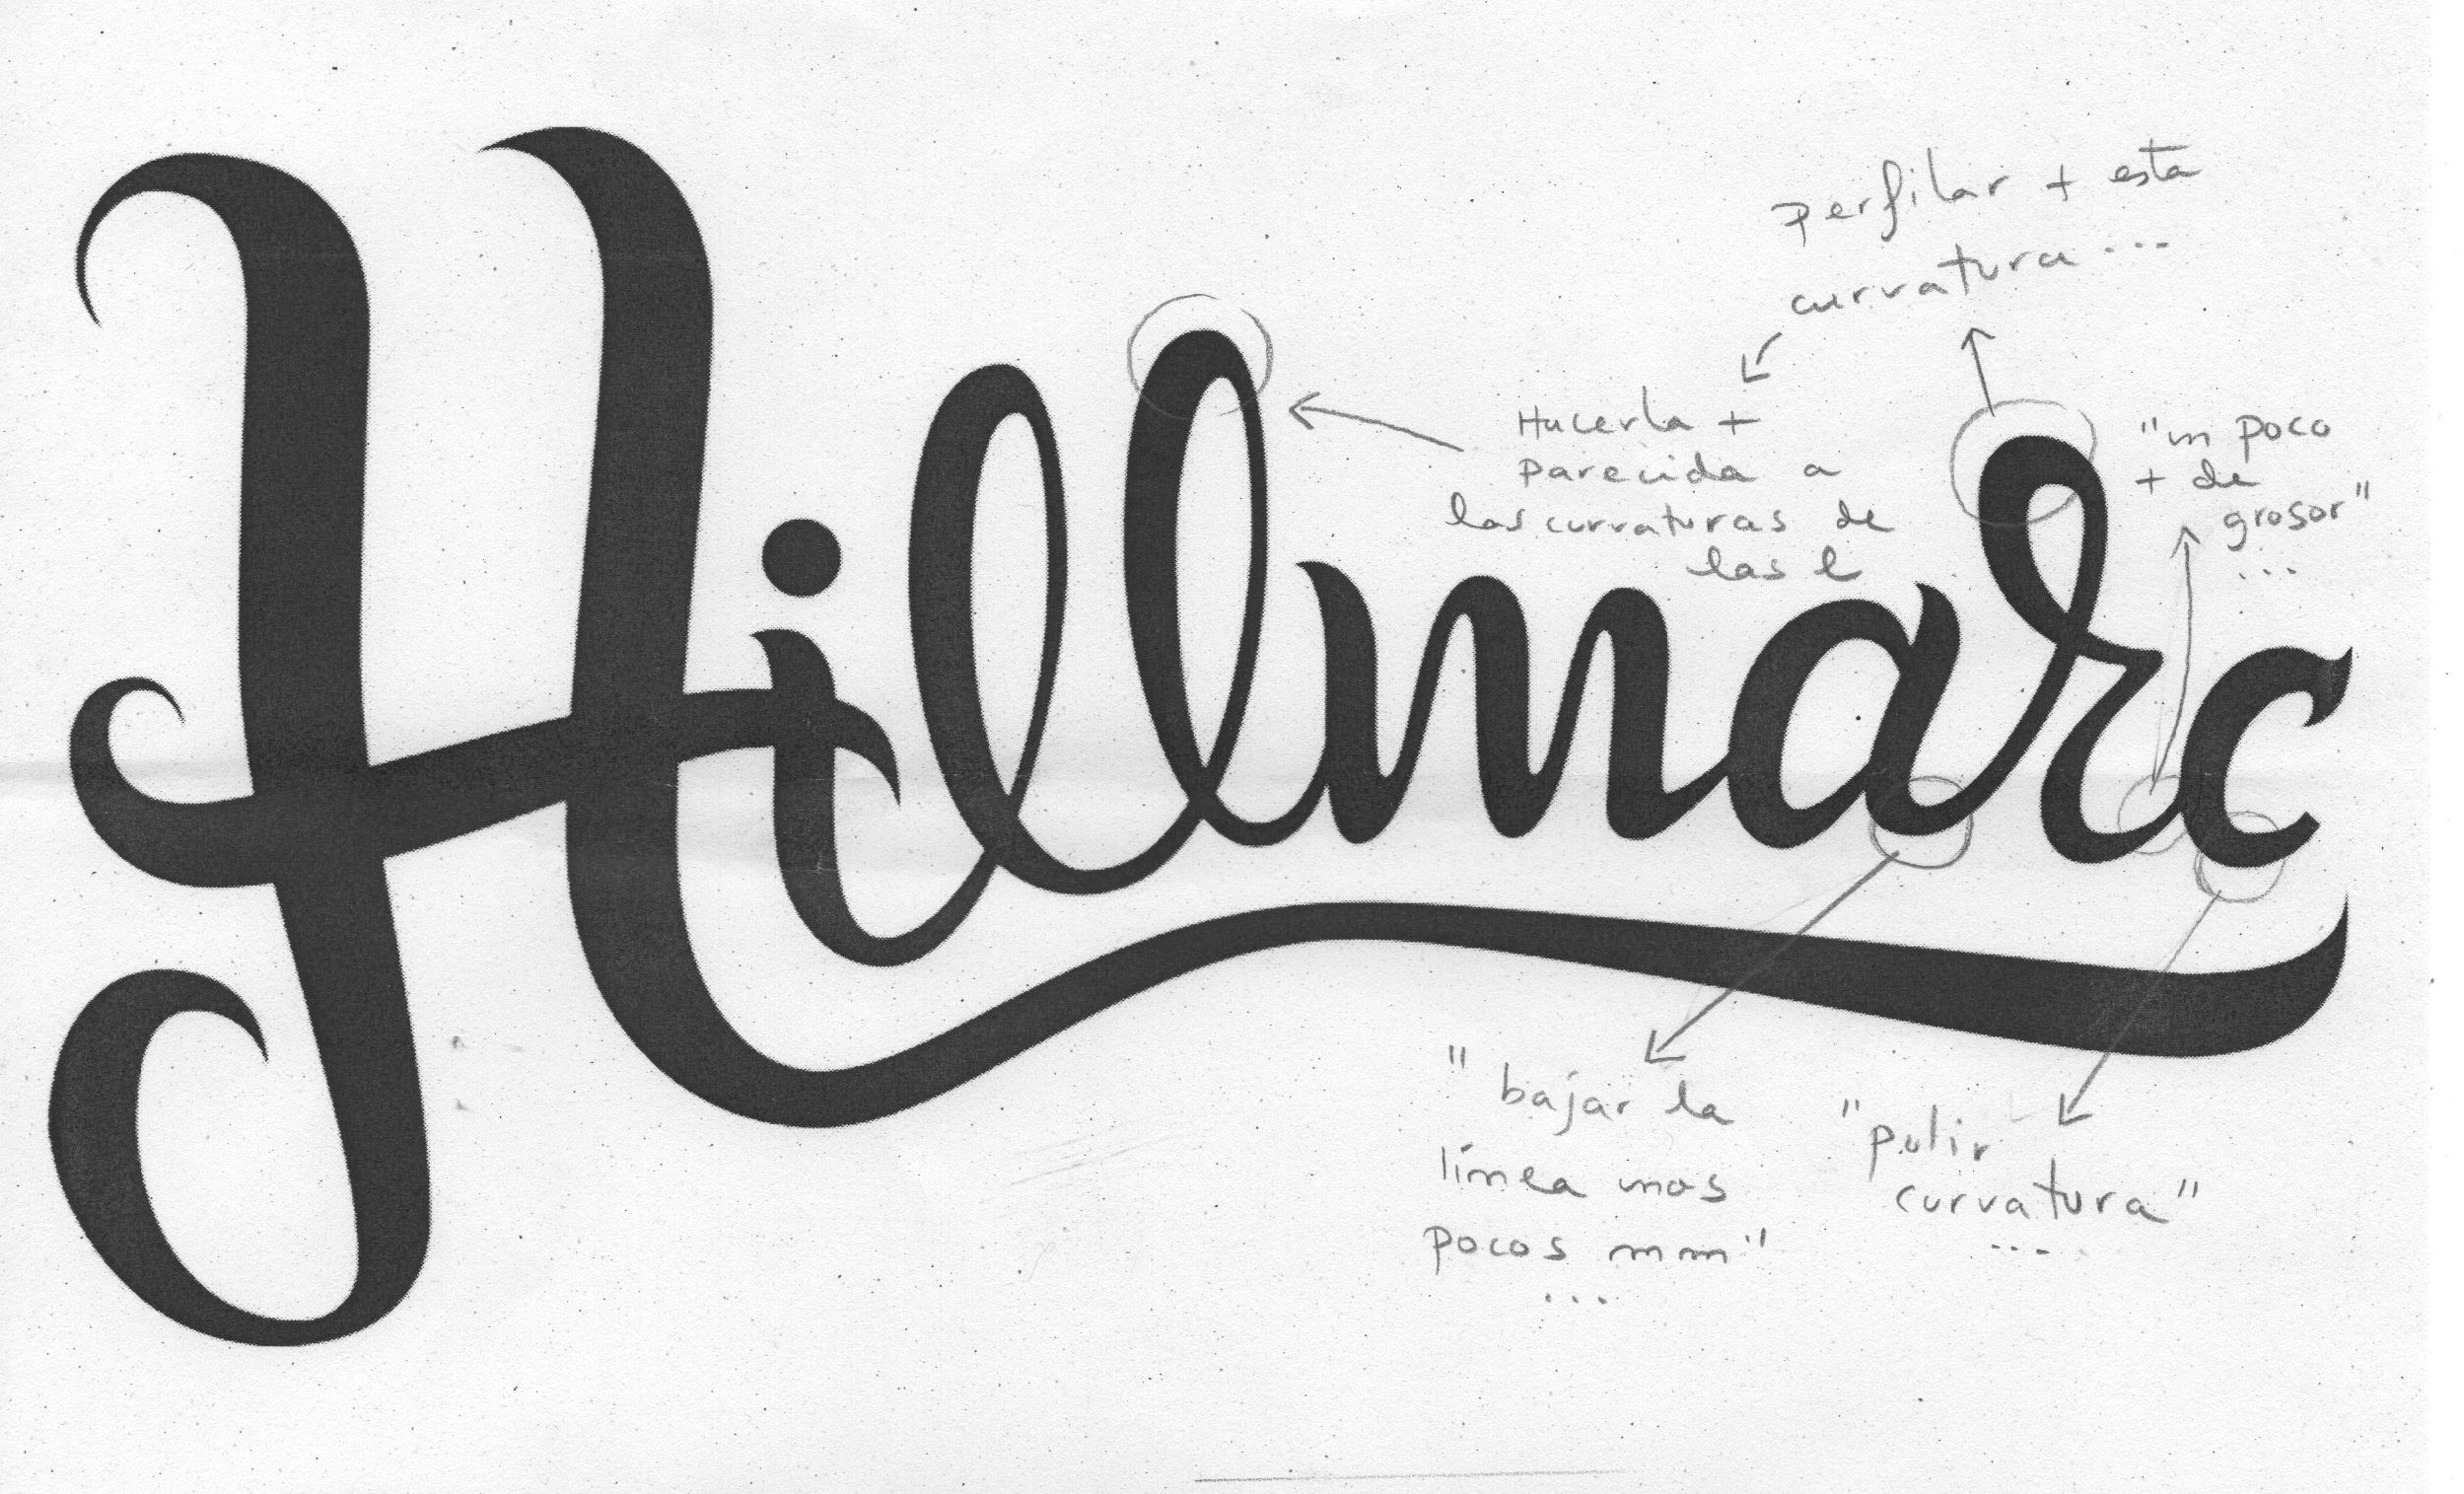 Hillmarc
perfilar + esta
curvatura...
Hacerla +
parecida a
las curvaturas de
las l
"un poco
+ de
grosor"
...
"bajar la
línea unos
pocos mm"
...
"pulir
curvatura"
...